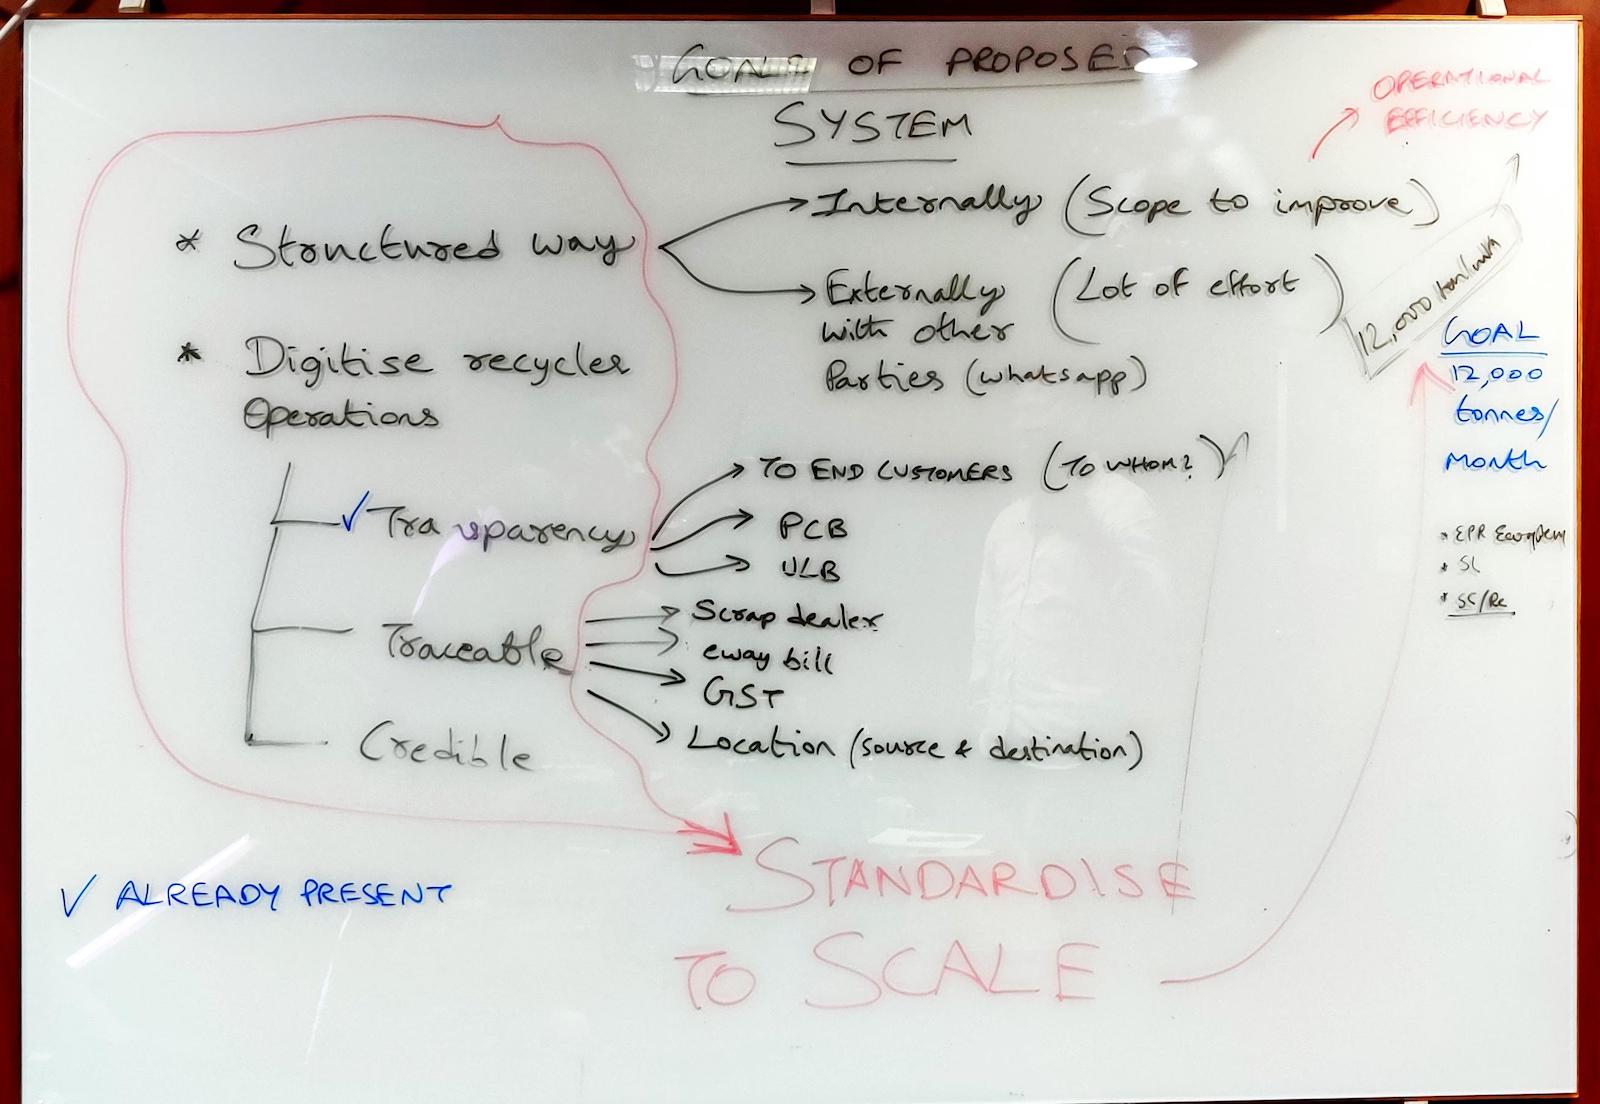 GOALS OF PROPOSED
SYSTEM
OPERATIONAL
EFFICIENCY
* Structured way
Internally (Scope to improve)
Externally (Lot of effort)
with other
Parties (whatsapp)
12,000 ton/mth
GOAL
12,000
tonnes/
Month
* EPR
* SL
* SC/Rc
* Digitise recycler
Operations
✓ Transparency
TO END CUSTOMERS (TO WHOM?)
PCB
ULB
Traceable
Scrap dealer
eway bill
GST
Location (source & destination)
Credible
STANDARDISE
TO SCALE
✓ ALREADY PRESENT